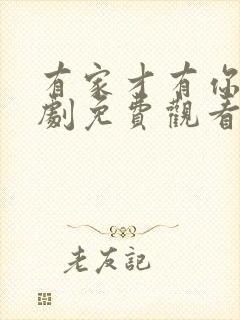 有家才有你
劇免費觀看
老友記